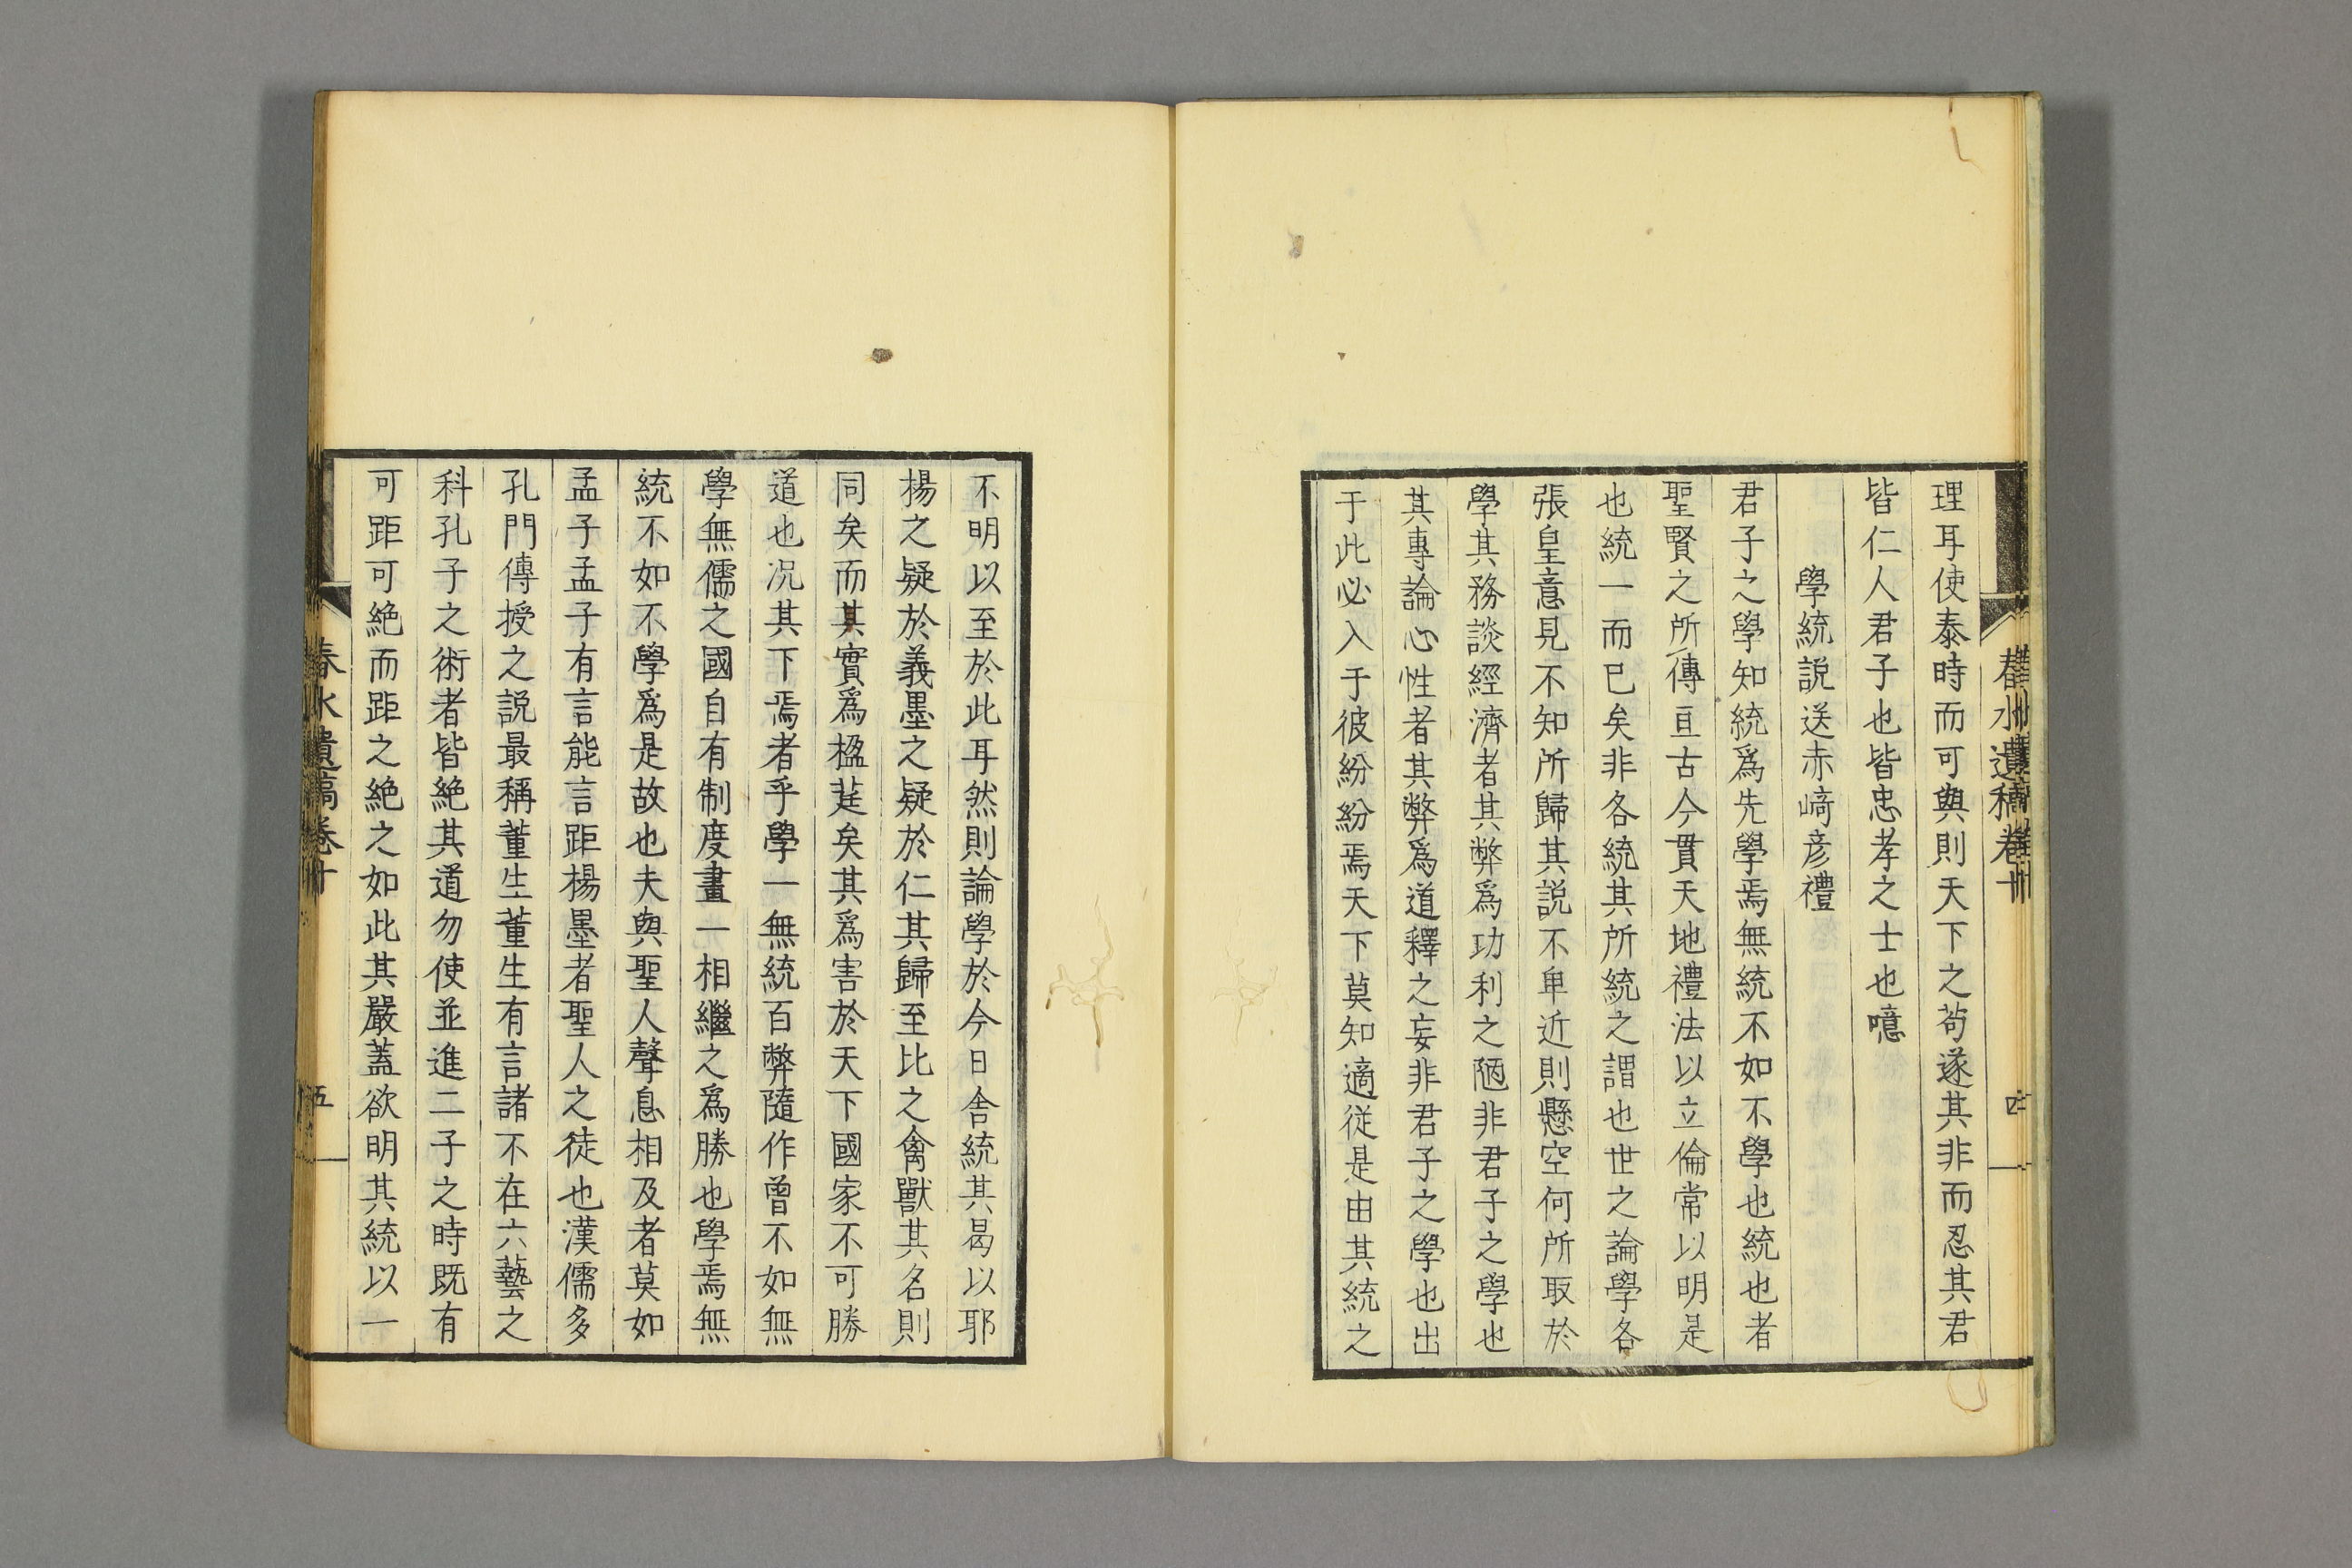 春水遺稿卷十
四
理耳使泰時而可與則天下之苟遂其非而忍其君
皆仁人君子也皆忠孝之士也噫
學統説送赤﨑彦禮
君子之學知統爲先學焉無統不如不學也統也者
聖賢之所傳亘古今貫天地禮法以立倫常以明是
也統一而已矣非各統其所統之謂也世之論學各
張皇意見不知所歸其説不卑近則懸空何所取於
學其務談經濟者其弊爲功利之陋非君子之學也
其專論心性者其弊爲道釋之妄非君子之學也出
于此必入于彼紛紛焉天下莫知適従是由其統之
不明以至於此耳然則論學於今日舎統其曷以耶
楊之疑於義墨之疑於仁其歸至比之禽獸其名則
同矣而其實爲楹莛矣其爲害於天下國家不可勝
道也况其下焉者乎學一無統百弊隨作曾不如無
學無儒之國自有制度畫一相繼之爲勝也學焉無
統不如不學爲是故也夫與聖人聲息相及者莫如
孟子孟子有言能言距楊墨者聖人之徒也漢儒多
孔門傳授之説最稱董生董生有言諸不在六藝之
科孔子之術者皆絶其道勿使並進二子之時既有
可距可絶而距之絶之如此其嚴蓋欲明其統以一
春水遺稿卷十
五